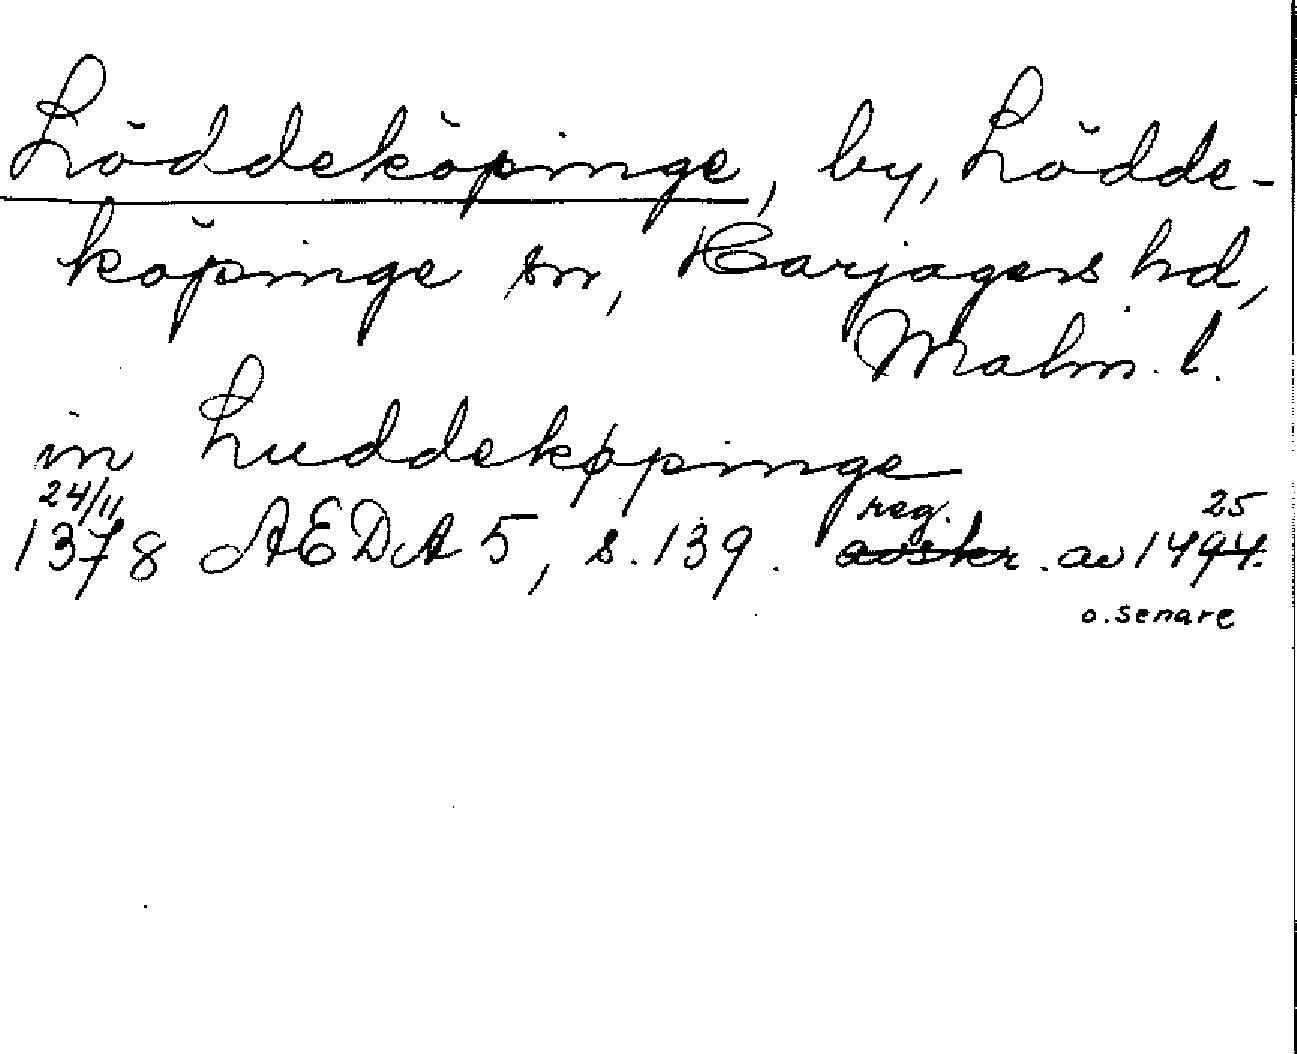 Löddeköpinge, by, Lödde-
köpinge sn, Harjagers hd,
Malm. l.
in Luddekøpinge
24/11 reg. 25
1378 AEDA 5, s. 139. avskr. av 1494.
o. senare